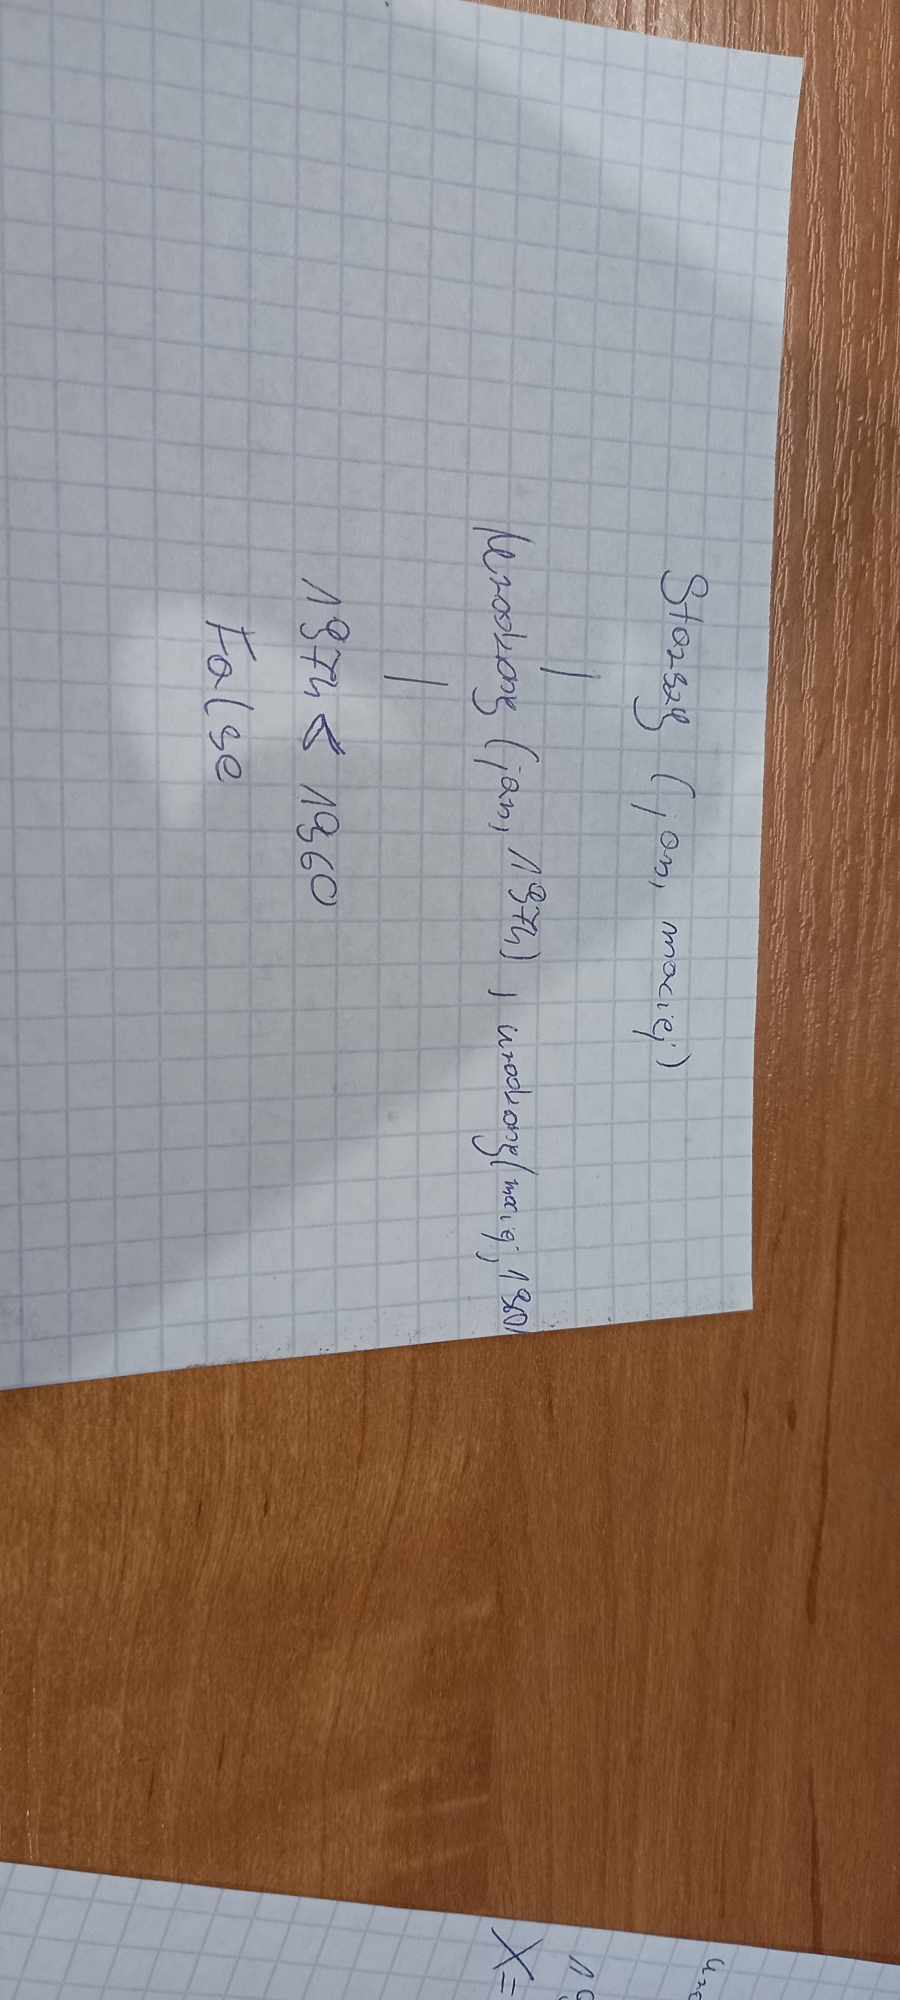 Starszy (jan, maciej)
|
urodzony (jan, 1974), urodzony(maciej,
|
1974 < 1960
False
X=